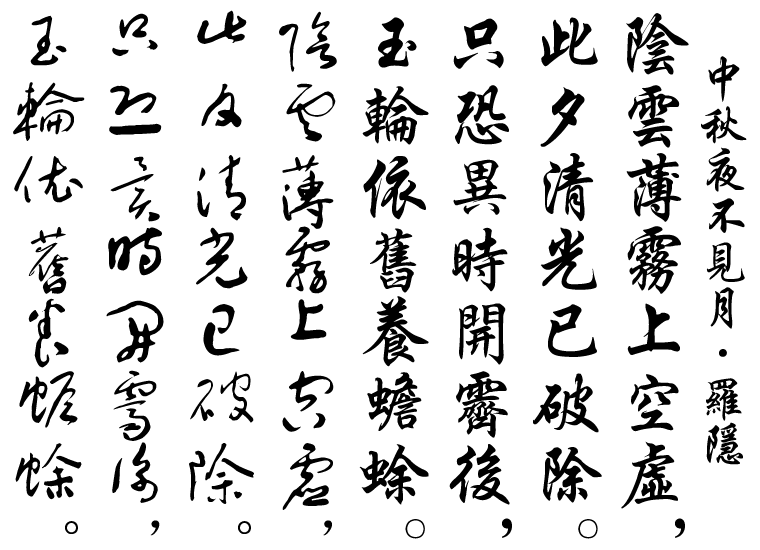 中秋夜不見月・羅隱
陰雲薄霧上空虛，
此夕清光已破除。
只恐異時開霽後，
玉輪依舊養蟾蜍。
陰雲薄霧上空虛，
此夕清光已破除。
只恐異時開霽後，
玉輪依舊養蟾蜍。